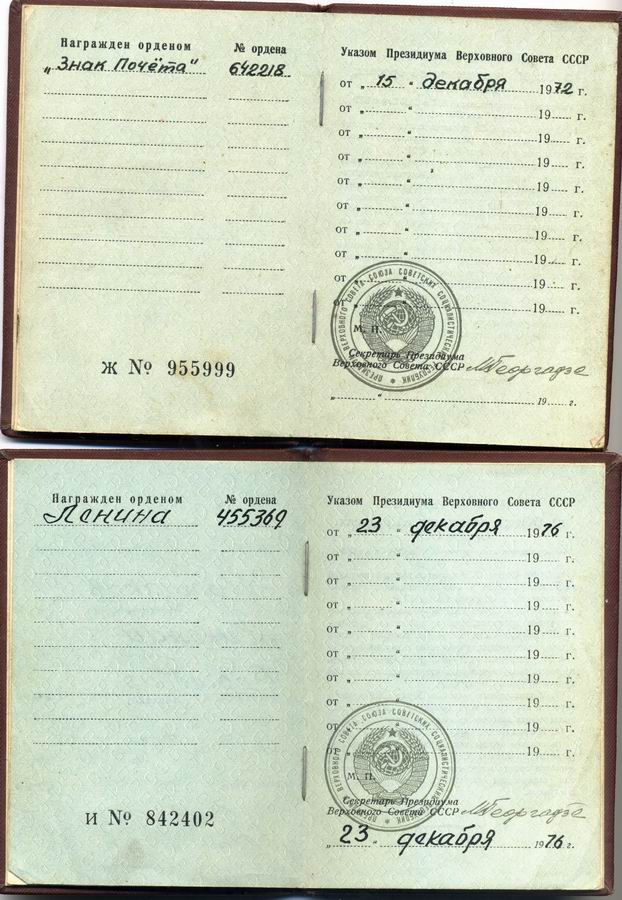 Награжден орденом № ордена
„Знак Почёта" 642218
Ж № 955999
Указом Президиума Верховного Совета СССР
от „15" декабря 1972 г.
от „ " 19 г.
от „ " 19 г.
от „ " 19 г.
от „ " 19 г.
от „ " 19 г.
от „ " 19 г.
от „ " 19 г.
от „ " 19 г.
от „ " 19 г.
ПРЕЗИДИУМ ВЕРХОВНОГО СОВЕТА СОЮЗА СОВЕТСКИХ СОЦИАЛИСТИЧЕСКИХ РЕСПУБЛИК
М. П.
Секретарь Президиума
Верховного Совета СССР МГеоргадзе
„ " 19 г.
Награжден орденом № ордена
Ленина 455369
И № 842402
Указом Президиума Верховного Совета СССР
от „23" декабря 1976 г.
от „ " 19 г.
от „ " 19 г.
от „ " 19 г.
от „ " 19 г.
от „ " 19 г.
от „ " 19 г.
от „ " 19 г.
от „ " 19 г.
от „ " 19 г.
ПРЕЗИДИУМ ВЕРХОВНОГО СОВЕТА СОЮЗА СОВЕТСКИХ СОЦИАЛИСТИЧЕСКИХ РЕСПУБЛИК
М. П.
Секретарь Президиума
Верховного Совета СССР МГеоргадзе
„23" декабря 1976 г.